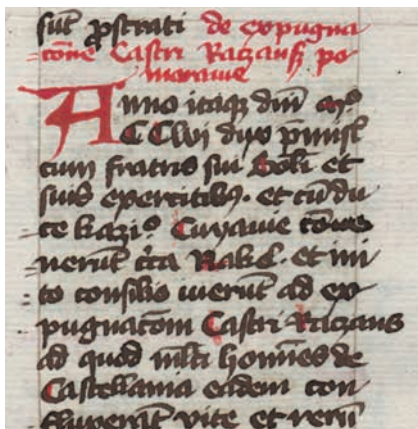 sūt ꝓstrati de expugna
cōne Castri Raczans po
maranie
Anno itaqꝫ dm̄ Mº
CCLvij dux p̄misl
cum fratris sui Bolē et
suis exercitibꝫ. et cū du
ce kaziº Cuyauie cōue
nerūt cͥca Nakel. et ini
to consilio iuerūt ad ex
pugnacōm Castri Raczans
ad quod ml̄ti hom̄ies de
Castellania eadem con
fluxerāt vite et rerū